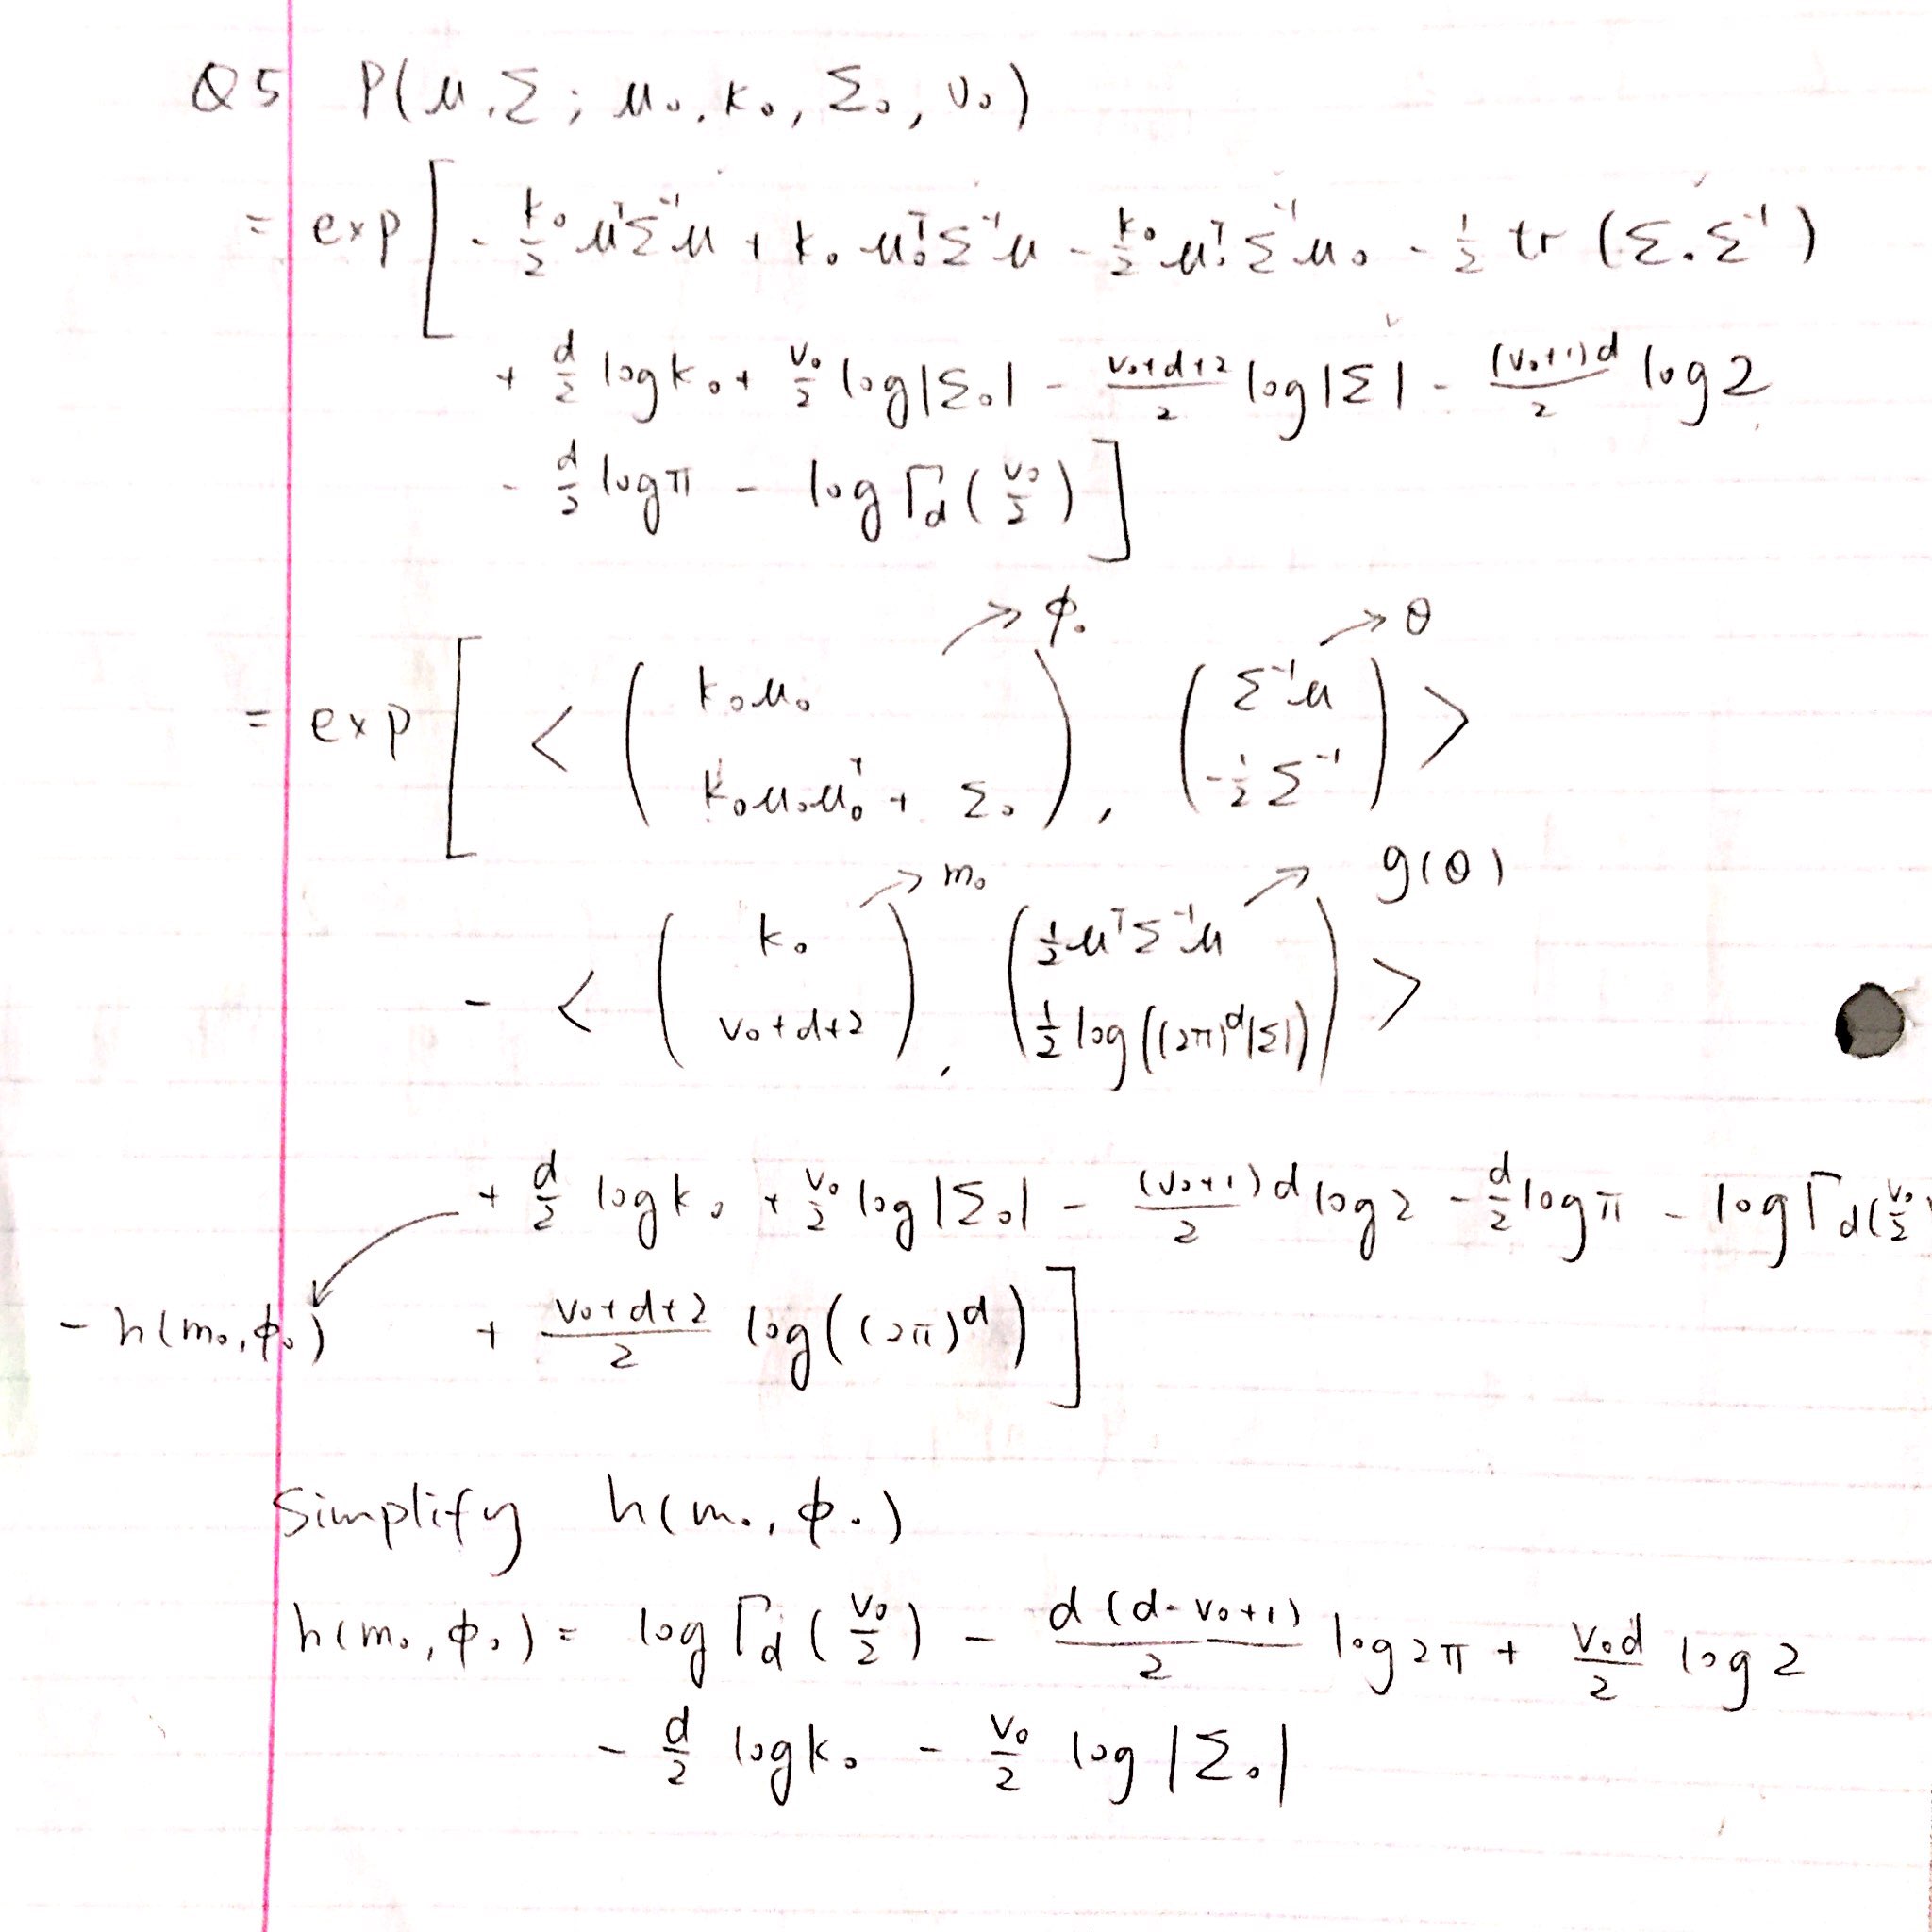 Q5 P(μ,Σ; μ₀,k₀,Σ₀,ν₀)
= exp[ - k₀/2 μᵀΣ⁻¹μ + k₀ μ₀ᵀΣ⁻¹μ - k₀/2 μ₀ᵀΣ⁻¹μ₀ - 1/2 tr (Σ₀Σ⁻¹)
+ d/2 log k₀ + ν₀/2 log|Σ₀| - (ν₀+d+2)/2 log|Σ| - (ν₀+1)d/2 log 2
- d/2 log π - log Γ_d(ν₀/2) ]
→ φ₀ → θ
= exp [ < ( k₀μ₀ ; k₀μ₀μ₀ᵀ + Σ₀ ), ( Σ⁻¹μ ; -1/2 Σ⁻¹ ) >
→ m₀ → g(θ)
- < ( k₀ ; ν₀+d+2 ), ( 1/2 μᵀΣ⁻¹μ ; 1/2 log((2π)ᵈ|Σ|) ) >
+ d/2 log k₀ + ν₀/2 log|Σ₀| - (ν₀+1)d/2 log 2 - d/2 log π - log Γ_d(ν₀/2)
- h(m₀,φ₀) + (ν₀+d+2)/2 log((2π)ᵈ) ]
Simplify h(m₀,φ₀)
h(m₀,φ₀) = log Γ_d(ν₀/2) - d(d-ν₀+1)/2 log 2π + ν₀d/2 log 2
- d/2 log k₀ - ν₀/2 log|Σ₀|